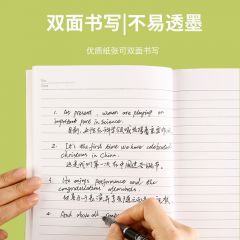 双面书写|不易透墨
优质纸张可双面书写
1. At present, women are playing an
important part in science.
目前,女性在科学领域起着重要作
2. It's the first time we have celebrated
christmas in China.
这是我们第一次在中国过圣诞节。
3. His song performance and the
congratulations afterwards.
4. And above all